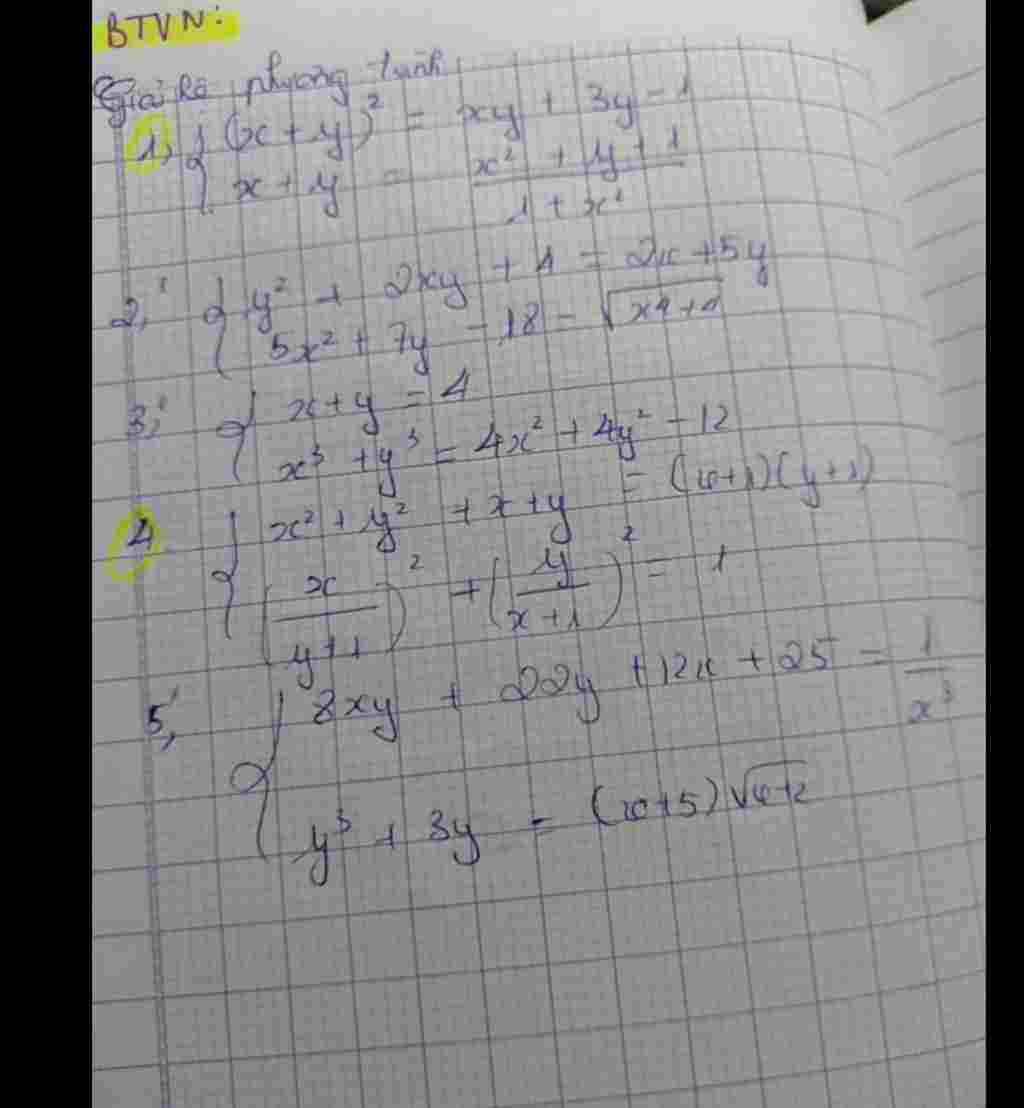 BTVN:
Giải hệ phương trình
1, { (x + y)² = xy + 3y - 1
x + y = (x² + y + 1)/(1 + x²)
2, { y² + 2xy + 4 = 2x + 5y
5x² + 7y - 18 = √(x⁴ + 4)
3, { x + y = 4
x³ + y³ = 4x² + 4y² - 12
4 { x² + y² + x + y = (x+1)(y+1)
(x/(y+1))² + (y/(x+1))² = 1
5, { 8xy + 22y + 12x + 25 = 1/x³
y³ + 3y = (x+5)√(x+2)